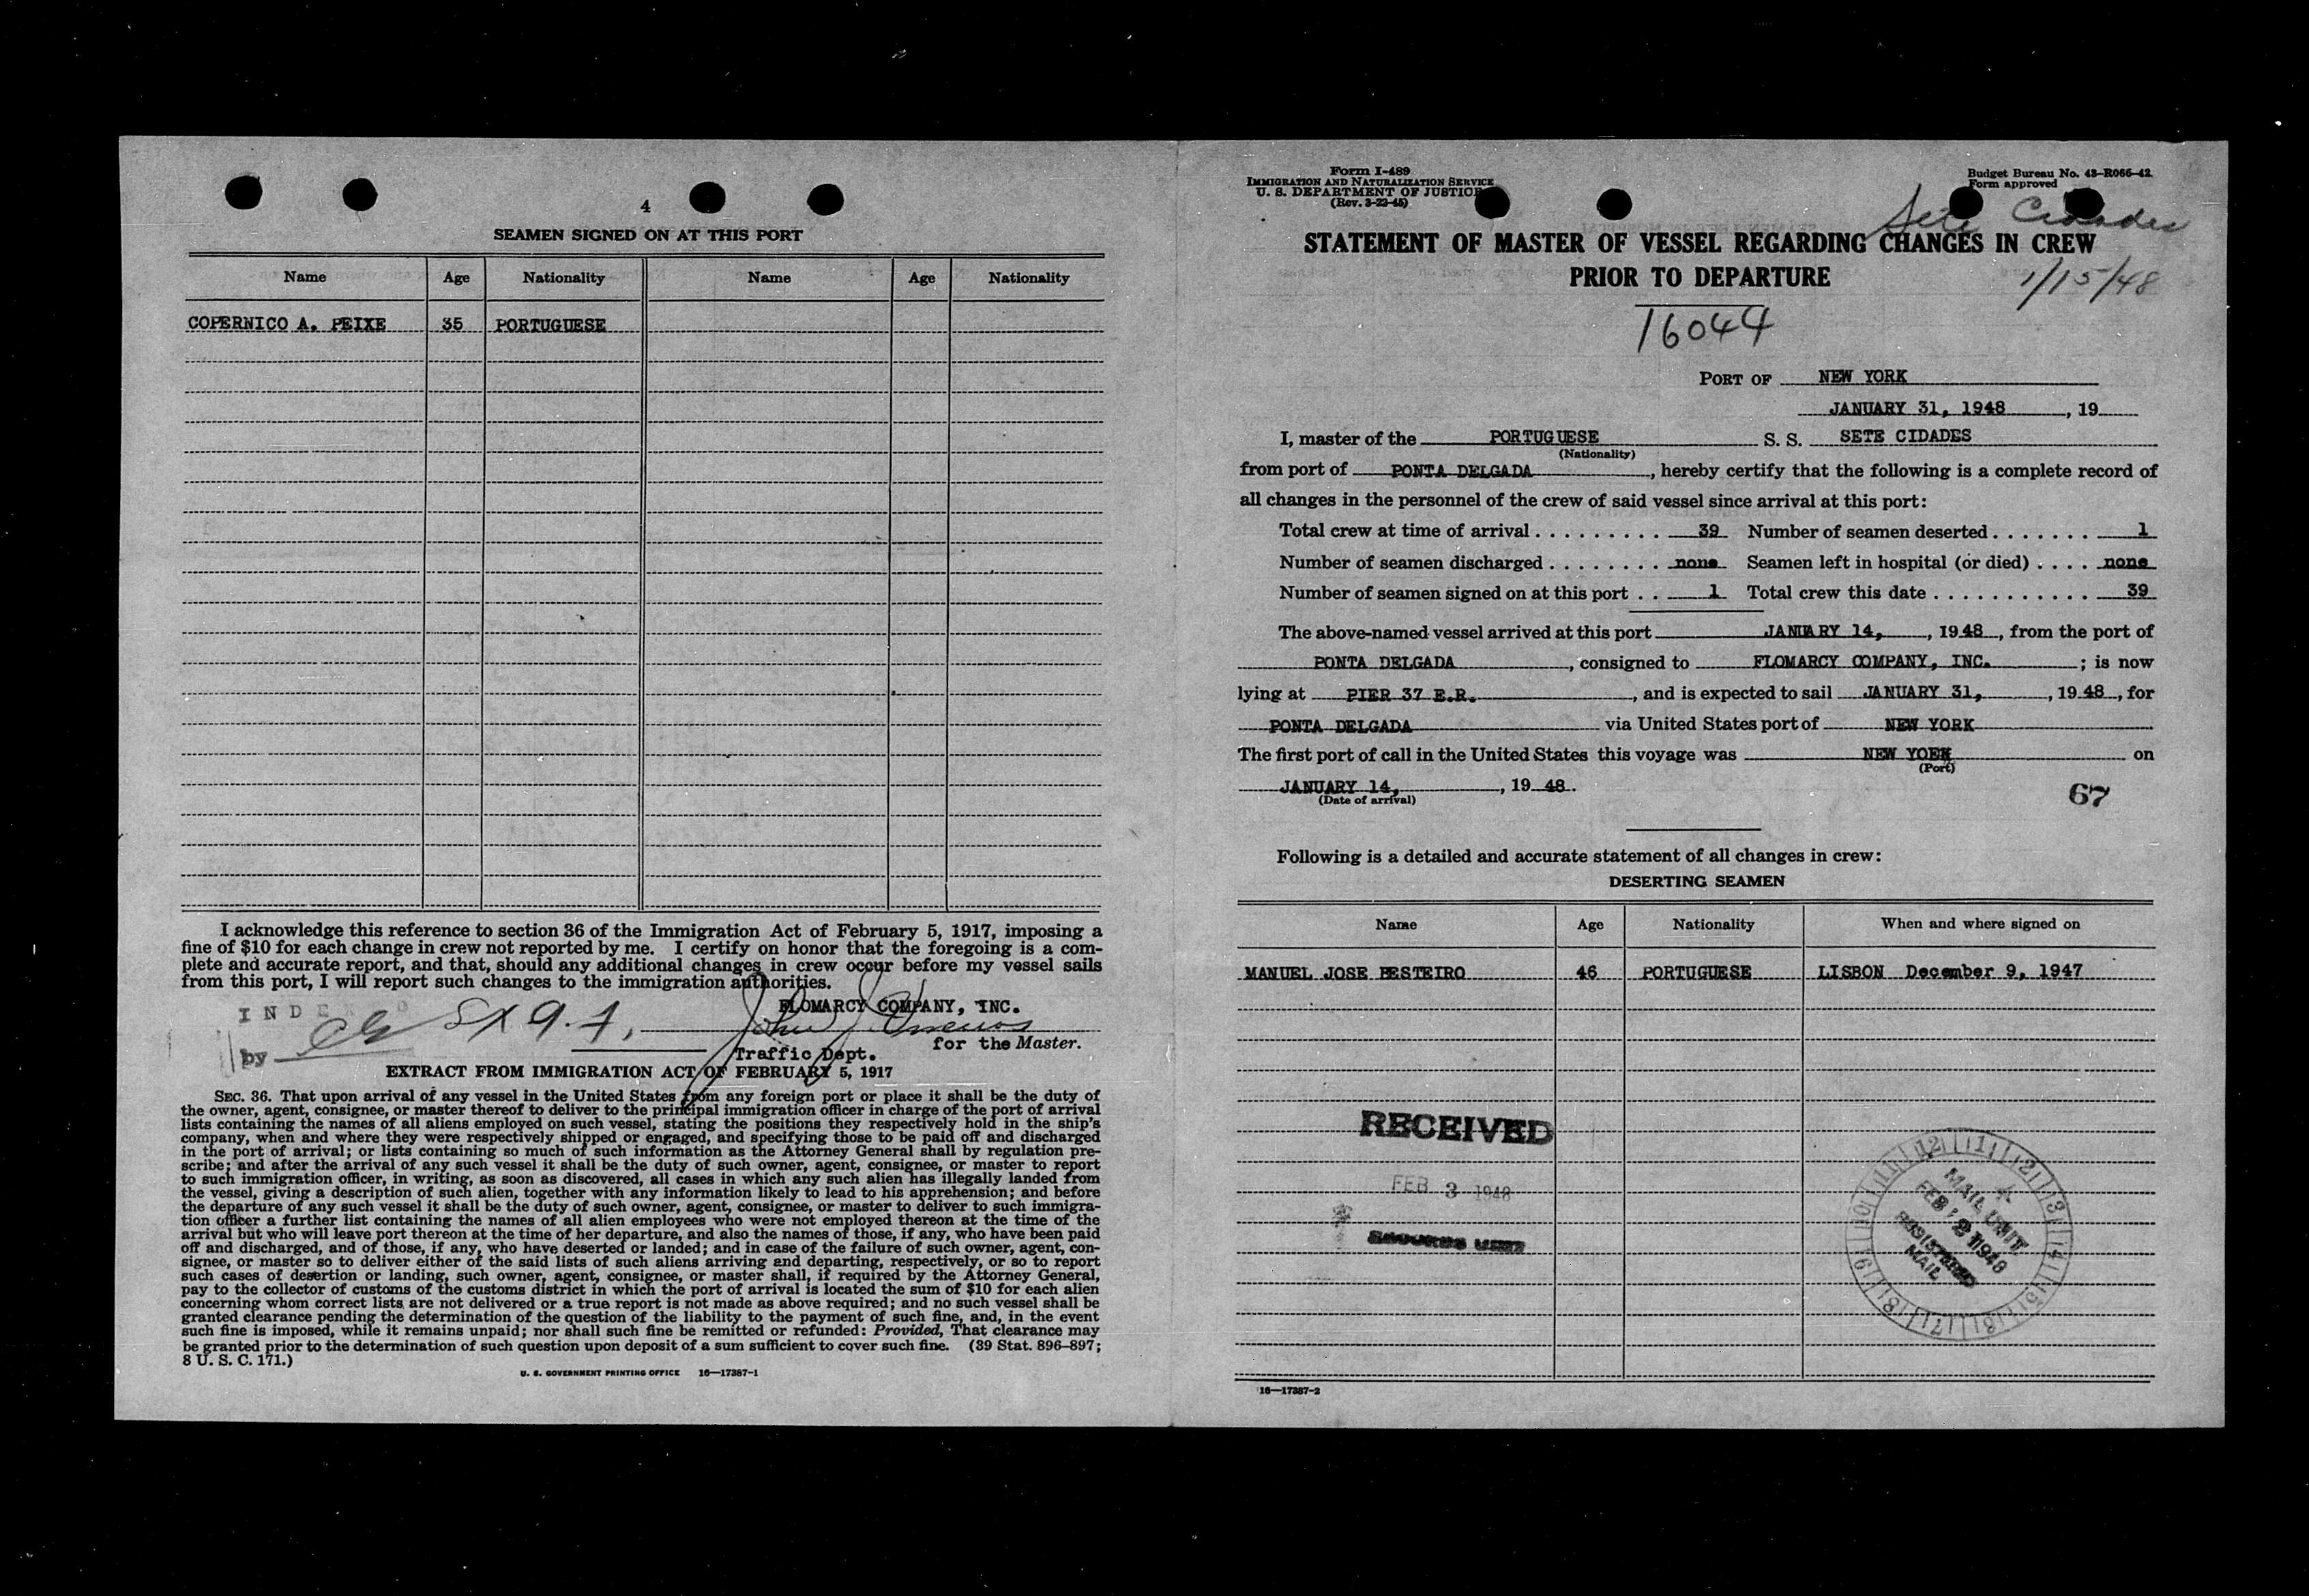 4
SEAMEN SIGNED ON AT THIS PORT
Name Age Nationality Name Age Nationality
COPERNICO A. PEIXE 35 PORTUGUESE
I acknowledge this reference to section 36 of the Immigration Act of February 5, 1917, imposing a
fine of $10 for each change in crew not reported by me. I certify on honor that the foregoing is a com-
plete and accurate report, and that, should any additional changes in crew occur before my vessel sails
from this port, I will report such changes to the immigration authorities.
FLOMARCY COMPANY, INC.
by
for the Master.
Traffic Dept.
EXTRACT FROM IMMIGRATION ACT OF FEBRUARY 5, 1917
SEC. 36. That upon arrival of any vessel in the United States from any foreign port or place it shall be the duty of
the owner, agent, consignee, or master thereof to deliver to the principal immigration officer in charge of the port of arrival
lists containing the names of all aliens employed on such vessel, stating the positions they respectively hold in the ship's
company, when and where they were respectively shipped or engaged, and specifying those to be paid off and discharged
in the port of arrival; or lists containing so much of such information as the Attorney General shall by regulation pre-
scribe; and after the arrival of any such vessel it shall be the duty of such owner, agent, consignee, or master to report
to such immigration officer, in writing, as soon as discovered, all cases in which any such alien has illegally landed from
the vessel, giving a description of such alien, together with any information likely to lead to his apprehension; and before
the departure of any such vessel it shall be the duty of such owner, agent, consignee, or master to deliver to such immigra-
tion officer a further list containing the names of all alien employees who were not employed thereon at the time of the
arrival but who will leave port thereon at the time of her departure, and also the names of those, if any, who have been paid
off and discharged, and of those, if any, who have deserted or landed; and in case of the failure of such owner, agent, con-
signee, or master so to deliver either of the said lists of such aliens arriving and departing, respectively, or so to report
such cases of desertion or landing, such owner, agent, consignee, or master shall, if required by the Attorney General,
pay to the collector of customs of the customs district in which the port of arrival is located the sum of $10 for each alien
concerning whom correct lists are not delivered or a true report is not made as above required; and no such vessel shall be
granted clearance pending the determination of the question of the liability to the payment of such fine, and, in the event
such fine is imposed, while it remains unpaid; nor shall such fine be remitted or refunded: Provided, That clearance may
be granted prior to the determination of such question upon deposit of a sum sufficient to cover such fine. (39 Stat. 896–897;
8 U. S. C. 171.)
U. S. GOVERNMENT PRINTING OFFICE 16—17387-1
Form I-489
IMMIGRATION AND NATURALIZATION SERVICE
U. S. DEPARTMENT OF JUSTICE
(Rev. 3-22-45)
Budget Bureau No. 43–R066–42
Form approved
Sete Cidades
STATEMENT OF MASTER OF VESSEL REGARDING CHANGES IN CREW
PRIOR TO DEPARTURE
1/15/48
16044
PORT OF NEW YORK
JANUARY 31, 1948, 19
I, master of the PORTUGUESE S. S. SETE CIDADES
(Nationality)
from port of PONTA DELGADA, hereby certify that the following is a complete record of
all changes in the personnel of the crew of said vessel since arrival at this port:
Total crew at time of arrival . . . . . . . . . 39 Number of seamen deserted . . . . . . . 1
Number of seamen discharged . . . . . . . . none Seamen left in hospital (or died) . . . . none
Number of seamen signed on at this port . . 1 Total crew this date . . . . . . . . . . . 39
The above-named vessel arrived at this port JANUARY 14, , 1948, from the port of
PONTA DELGADA, consigned to FLOMARCY COMPANY, INC. ; is now
lying at PIER 37 E.R. , and is expected to sail JANUARY 31, , 1948, for
PONTA DELGADA via United States port of NEW YORK
The first port of call in the United States this voyage was NEW YORK on
(Port)
JANUARY 14, , 19 48.
(Date of arrival)
67
Following is a detailed and accurate statement of all changes in crew:
DESERTING SEAMEN
Name Age Nationality When and where signed on
MANUEL JOSE BESTEIRO 46 PORTUGUESE LISBON December 9, 1947
RECEIVED
FEB 3 1948
MAIL UNIT
FEB 2 1948
REGISTERED
MAIL
16—17387-2